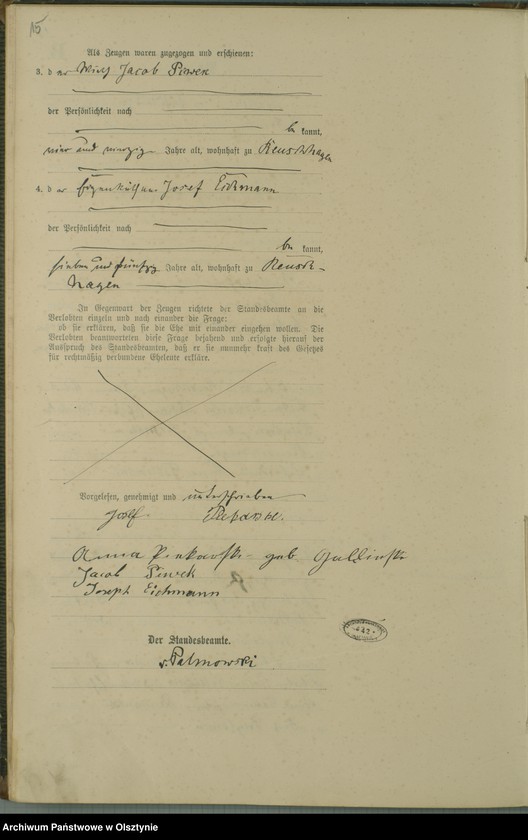 15
Als Zeugen waren zugezogen und erschienen:
3. der Wirt Jacob Siwek
der Persönlichkeit nach
be kannt,
vier und vierzig Jahre alt, wohnhaft zu Reuschhagen
4. der Eigenkäthner Josef Eichmann
der Persönlichkeit nach
be kannt,
sieben und fünfzig Jahre alt, wohnhaft zu Reusch-
hagen
In Gegenwart der Zeugen richtete der Standesbeamte an die
Verlobten einzeln und nach einander die Frage:
ob sie erklären, daß sie die Ehe mit einander eingehen wollen. Die
Verlobten beantworteten diese Frage bejahend und erfolgte hierauf der
Ausspruch des Standesbeamten, daß er sie nunmehr kraft des Gesetzes
für rechtmäßig verbundene Eheleute erkläre.
Vorgelesen, genehmigt und unterschrieben
Josef
Anna geb
Jacob Siwek
Joseph Eichmann
Der Standesbeamte.
v. Palmowski
Archiwum Państwowe w Olsztynie